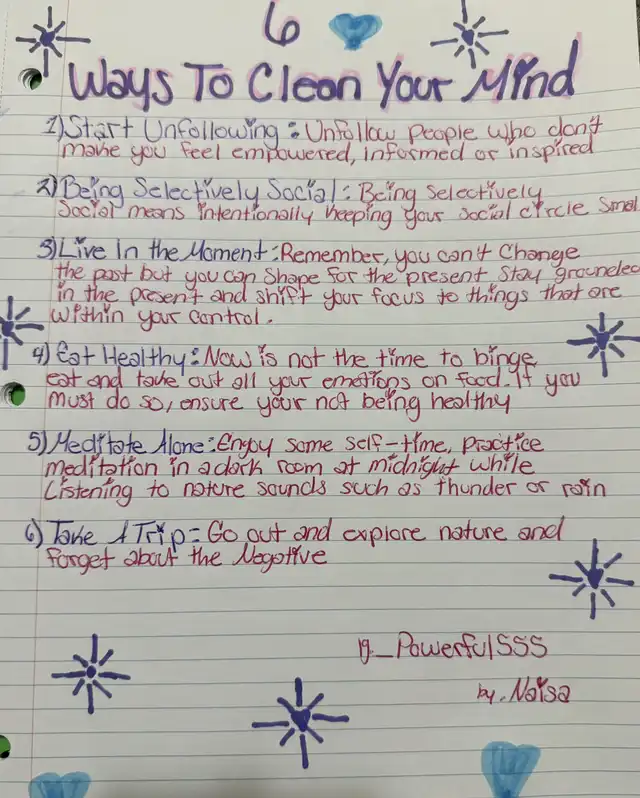 6
Ways To Clean Your Mind
1) Start Unfollowing: Unfollow people who don't
make you feel empowered, informed or inspired
2) Being Selectively Social: Being selectively
Social means intentionally keeping your social circle Small
3) Live In the Moment: Remember, you can't Change
the past but you can shape for the present Stay grounded
in the present and shift your focus to things that are
within your control.
4) Eat Healthy: Now is not the time to binge
eat and take out all your emotions on food. If you
must do so, ensure your not being healthy
5) Meditate Alone: Enjoy some self-time, practice
meditation in a dark room at midnight while
Listening to nature sounds such as thunder or rain
6) Take A Trip= Go out and explore nature and
forget about the Negative
ig_PowerfulSSS
by. Naisa